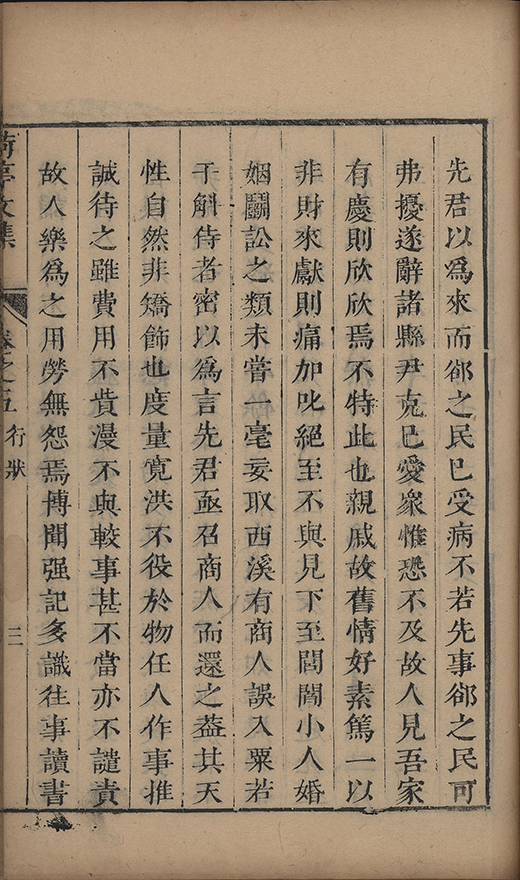 先君以爲來而郤之民已受病不若先事郤之民可
弗擾遂辭諸縣尹克已愛衆惟恐不及故人見吾家
有慶則欣欣焉不特此也親戚故舊情好素篤一以
非財來獻則痛加叱絕至不與見下至閭閻小人婚
姻鬭訟之類未嘗一毫妄取西溪有商人誤入粟若
干斛侍者密以爲言先君亟召商人而還之葢其天
性自然非矯飾也度量寬洪不役於物任人作事推
誠待之雖費用不貲漫不與較事甚不當亦不譴責
故人樂爲之用勞無怨焉博聞强記多識往事讀書
荷亭文集
卷之五
行狀
三